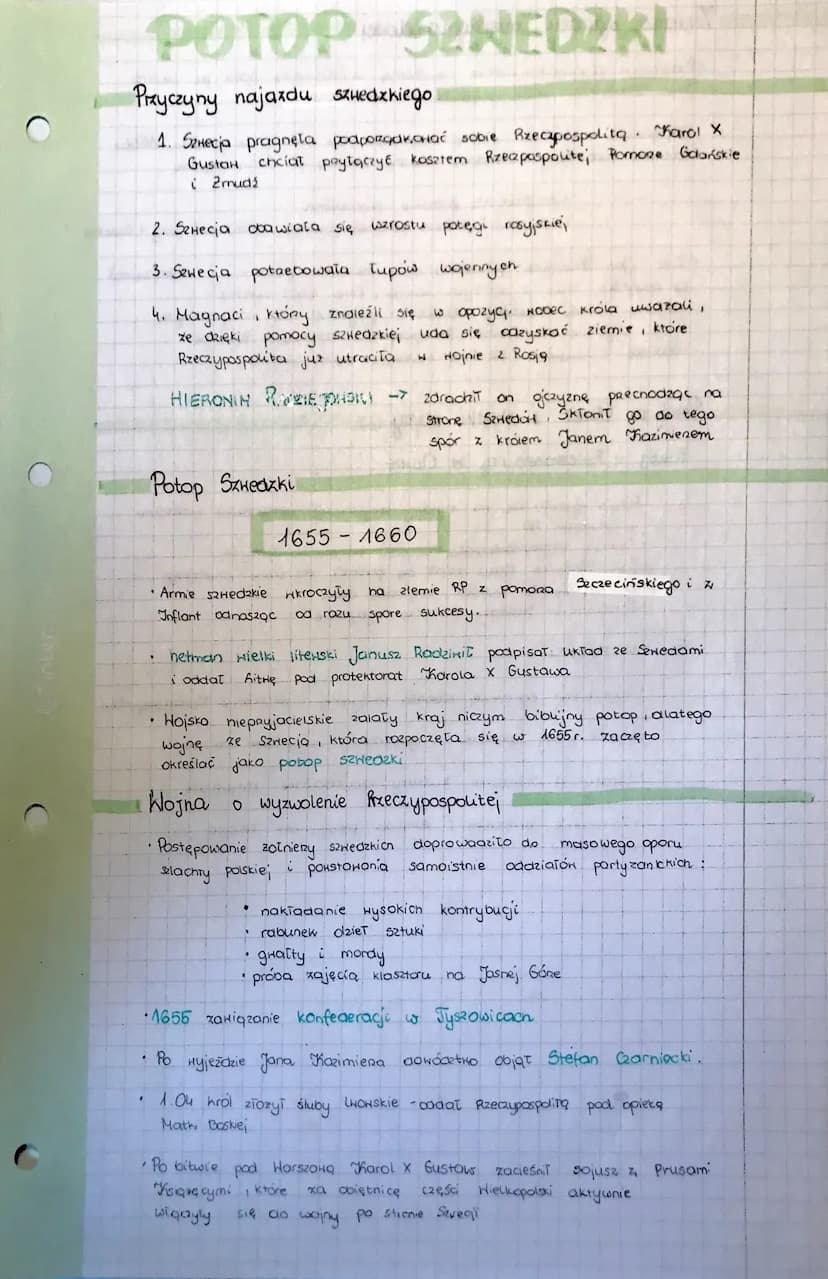 POTOP SZWEDZKI
Przyczyny najazdu szwedzkiego
1. Szwecja pragnęła podporządkować sobie Rzeczpospolitą. Karol X
Gustaw chciał przyłączyć kosztem Rzeczpospolitej Pomorze Gdańskie
i Żmudź
2. Szwecja obawiała się wzrostu potęgi rosyjskiej
3. Szwecja potrzebowała łupów wojennych
4. Magnaci, który znaleźli się w opozycji wobec króla uważali,
że dzięki pomocy szwedzkiej uda się odzyskać ziemie, które
Rzeczypospolita już utraciła w wojnie z Rosją
HIERONIM -> zdradził on ojczyznę przechodząc na
stronę Szwedów. Skłonił go do tego
spór z królem Janem Kazimierzem
Potop Szwedzki
1655 - 1660
• Armie szwedzkie wkroczyły na ziemie RP z pomorza Szczecińskiego i z
Inflant odnosząc od razu spore sukcesy.
• hetman wielki litewski Janusz Radziwił podpisał układ ze Szwedami
i oddał Litwę pod protektorat Karola X Gustawa
• Wojsko nieprzyjacielskie zalały kraj niczym biblijny potop, dlatego
wojnę ze Szwecją, która rozpoczęła się w 1655r. zaczęto
określać jako potop szwedzki
Wojna o wyzwolenie Rzeczypospolitej
• Postępowanie żołnierzy szwedzkich doprowadziło do masowego oporu
szlachty polskiej i powstowania samoistnie oddziałów partyzanckich:
• nakładanie wysokich kontrybucji
• rabunek dzieł sztuki
• gwałty i mordy
• próba zajęcia klasztoru na Jasnej Górze
• 1655 zawiązanie konfederacji w Tyszowicach
• Po wyjeździe Jana Kazimierza dowództwo objął Stefan Czarniecki.
• 1.04 król złożył śluby lwowskie - oddał Rzeczypospolitą pod opiekę
Matki Boskiej
• Po bitwie pod Warszawą Karol X Gustaw zacieśnił sojusz z Prusami
Książęcymi, które za obietnicę części Wielkopolski aktywnie
się do wojny po stronie Szwecji